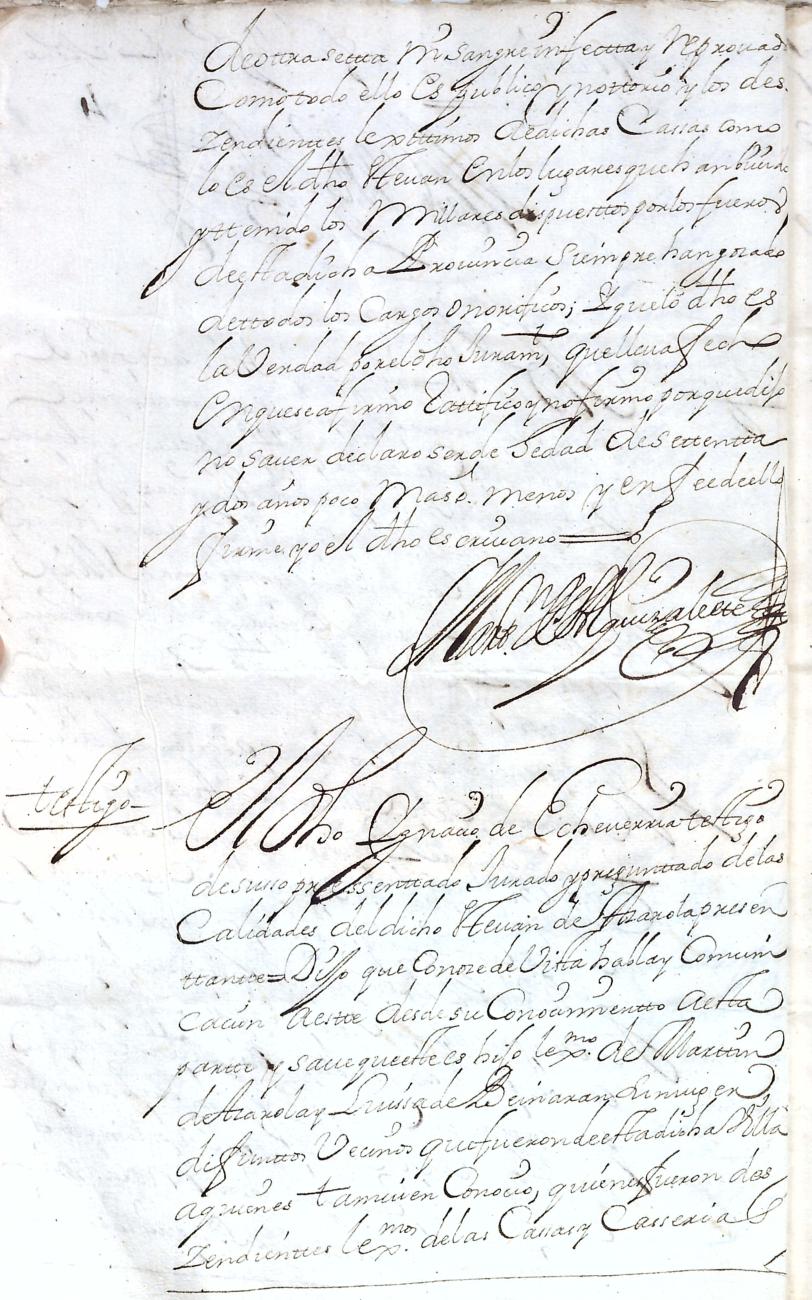 de otra setta ni sangre infectta y Reprouad
Como todo ello es publico y nottorio y los des
zendienttes lexittimos de dichas Cassas como
lo es el dho Esteuan en los lugares que han biuido
y ttenido los Millares dispuesttos por los fueros
de esta dicha Prouincia siempre han gozado
de ttodos los Cargos onorificos; Y que lo dho es
la Verdad por el dho Juramto, que lleua fecho
en que se afirmo Rattifico y no firmo porque dijo
no sauer declaro ser de hedad de settentta
y dos años poco mas o menos y en fee de ello
firme yo el dho escriuano
testigo
El dho Ygnacio de Echeuerria testigo
de suso pressenttado Jurado y preguntado de las
Calidades del dicho Esteuan de Arzarola presen
ttante = Dijo que Conoze de Vista habla y Comuni
cacion a estte desde su Conocimientto a esta
partte y saue que estte es hijo lexmo. de Marttin
de Arzarola y Luissa de Beinaran
difunttos Vecinos que fueron de esta dicha Villa
a quienes tamuien Conocio, quienes fueron des
zendienttes lexmos. de las Cassas y Casserias